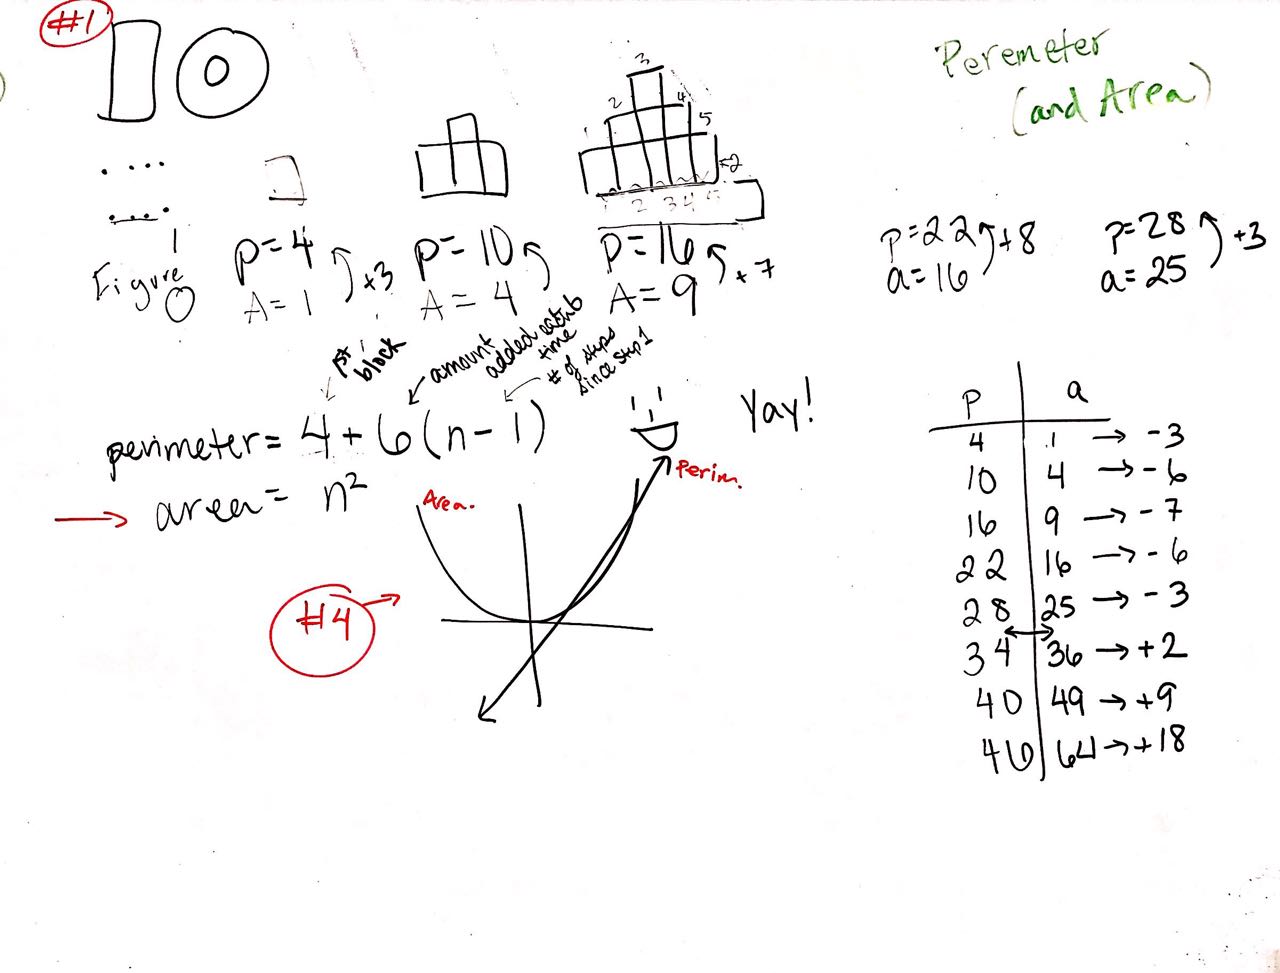 #1
Peremeter
(and Area)
3
2 4
1 5
+2
1 2 3 4 5
Figure
1
0
P=4
A=1
+3
P=10
A=4
P=16
A=9
+7
P=22
a=16
+8
P=28
a=25
+3
1st block
amount added each time
6
# of steps since step 1
perimeter = 4+6(n-1)
Yay!
area = n²
Area.
Perim.
#4
P a
4 1 → -3
10 4 → -6
16 9 → -7
22 16 → -6
28 25 → -3
34 36 → +2
40 49 → +9
46 64 → +18